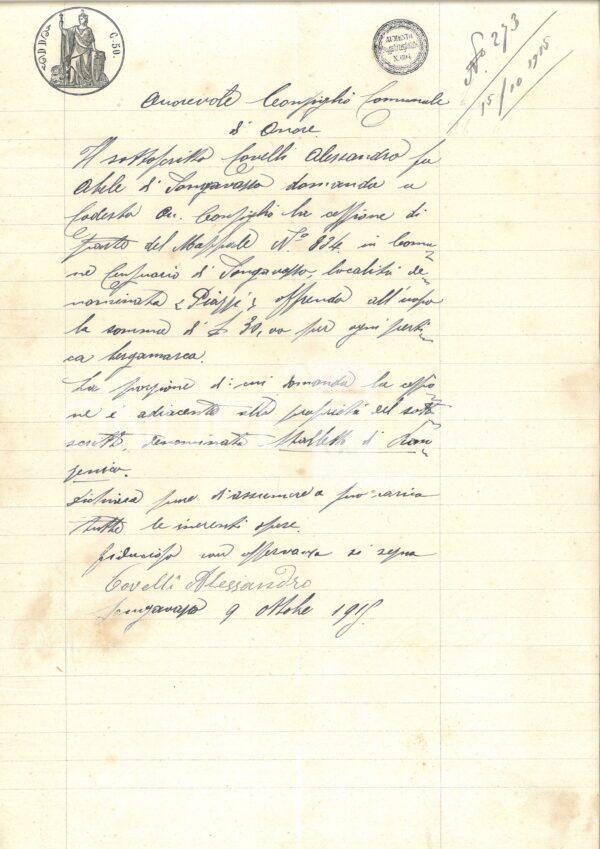 C. 50.
AUMENTO
No. 273
15/10 1915
Onorevole Consiglio Comunale
d'Onore.
Il sottoscritto Covelli Alessandro fu
Abele di Songavazzo domanda a
Codesto On. Consiglio la cessione di
parte del Mappale N.o 834 in Comu-
ne Censuario di Songavazzo, località de-
nominata "Piazzi", offrendo all'uopo
la somma di £ 30,00 per ogni perti-
ca bergamasca.
La porzione di cui domanda la cessio-
ne è adiacente alla proprietà del sotto-
scritto, denominata Stalletti di
Dichiara pure d'assumere a suo carico
tutte le inerenti spese.
Fiducioso con osservanza si segna
Covelli Alessandro
Songavazzo 9 ottobre 1915